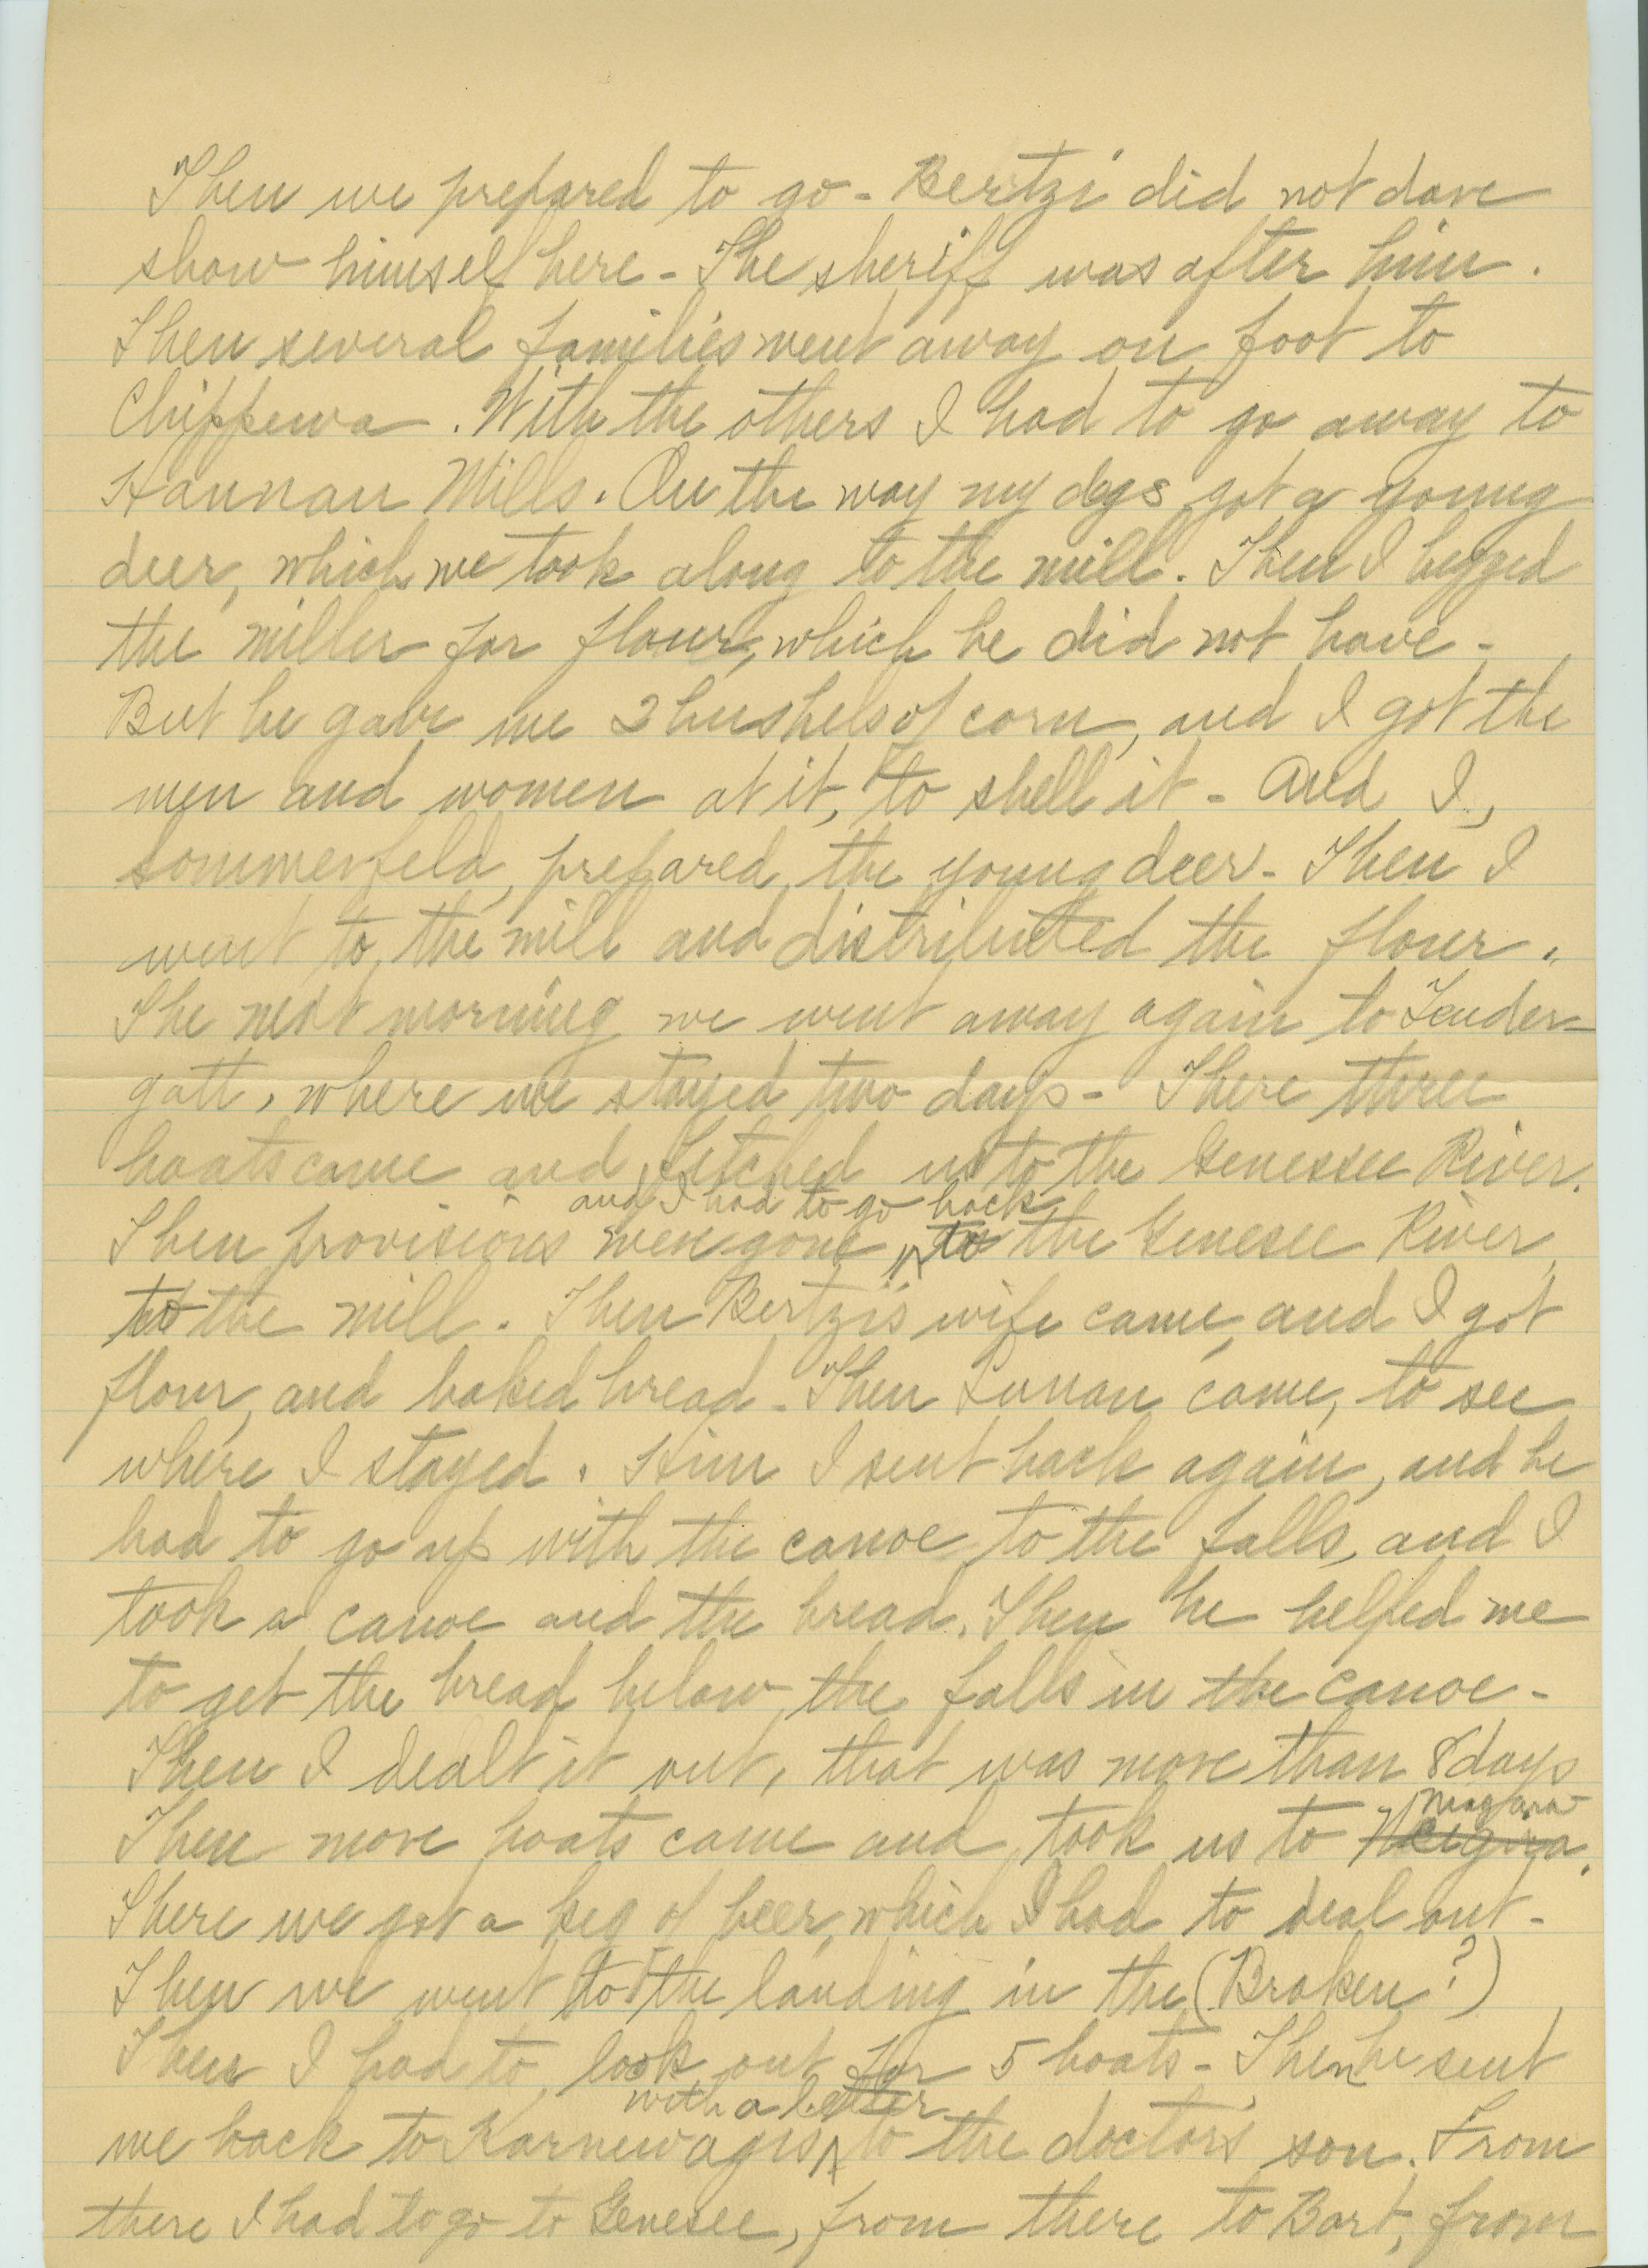 Then we prepared to go - Bertzi did not dare
show himself here - The sheriff was after him.
Then several families went away on foot to
Chippewa. With the others I had to go away to
Hannan Mills. On the way my dogs got a young
deer, which we took along to the mill. Then I begged
the miller for flour, which he did not have -
But he gave me 2 bushels of corn, and I got the
men and women at it, to shell it - And I,
Sommerfeld, prepared the young deer - Then I
went to the mill and distributed the flour.
The next morning we went away again to Tender-
gatt, where we stayed two days - There three
boats came and fetched us to the Genessee River.
and I had to go back
Then provisions were gone to the Genesee River,
to the mill. Then Bertzi's wife came, and I got
flour, and baked bread - Then Lunan came, to see
where I stayed. Him I sent back again, and he
had to go up with the canoe to the falls, and I
took a canoe and the bread. Then he helped me
to get the bread below the falls in the canoe -
Then I dealt it out, that was more than 8 days
Niagara
Then more boats came and took us to Neigara.
There we got a keg of beer, which I had to deal out -
Then we went to the landing in the (Broken?)
Then I had to look out for 5 boats - Then he sent
with a letter
me back to Karnewagis to the doctor's son. From
there I had to go to Genesee, from there to Bart, from